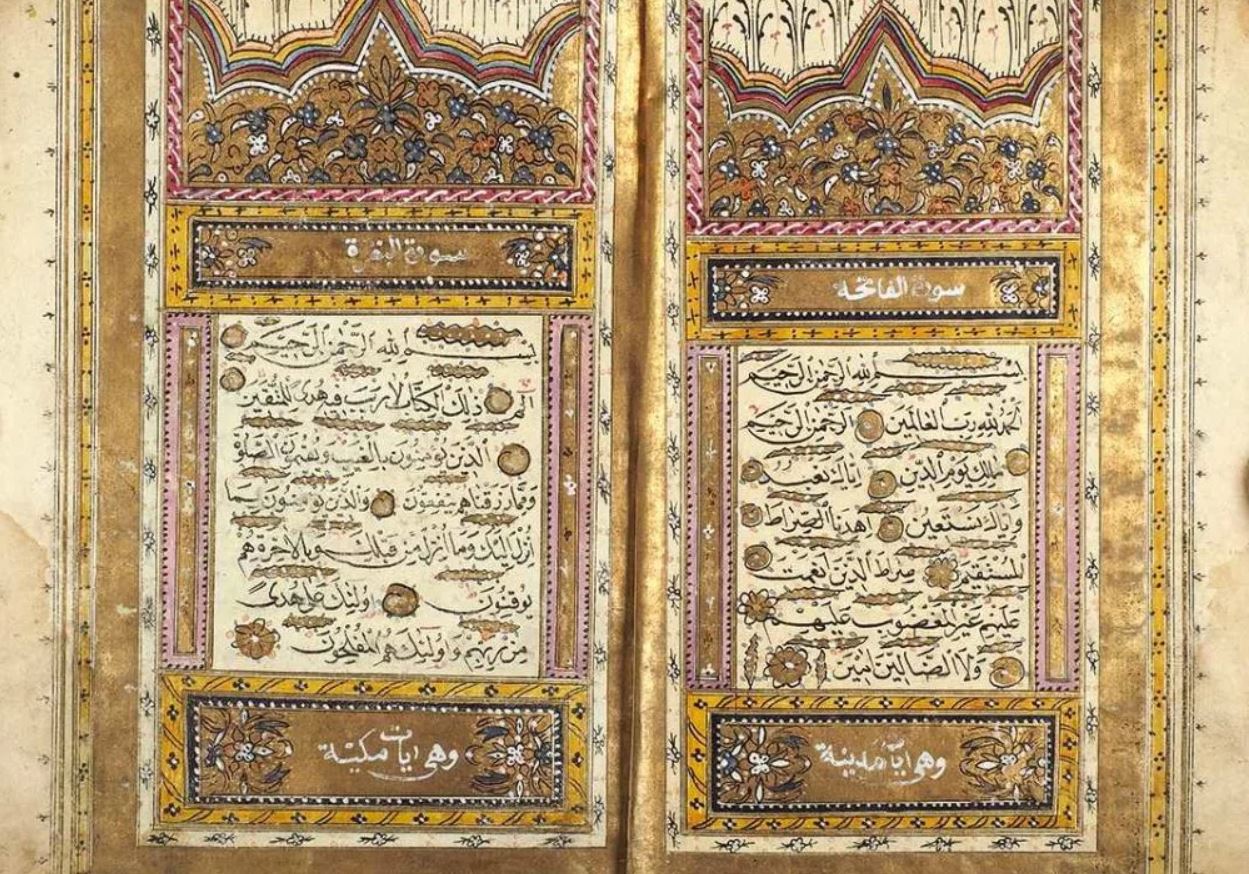 سورة الفاتحة
بسم الله الرحمن الرحيم
الحمد لله رب العالمين الرحمن الرحيم
مالك يوم الدين اياك نعبد
واياك نستعين اهدنا الصراط
المستقيم صراط الذين انعمت
عليهم غير المغضوب عليهم
ولا الضالين امين
وهى اية مدينة
سورة البقرة
بسم الله الرحمن الرحيم
الم ذلك الكتاب لا ريب فيه هدى للمتقين
الذين يؤمنون بالغيب ويقيمون الصلوة
ومما رزقناهم ينفقون والذين يؤمنون بما
انزل اليك وما انزل من قبلك وبالاخرة هم
يوقنون اولئك على هدى
من ربهم واولئك هم المفلحون
وهى ايات مكية